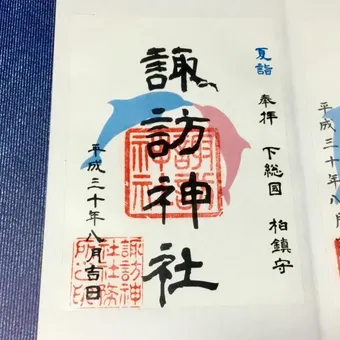 夏詣
奉拝 下総国 柏鎮守
諏訪神社
平成三十年八月吉日
諏訪神社
諏訪神
社社務
所之印
平成三十年八月